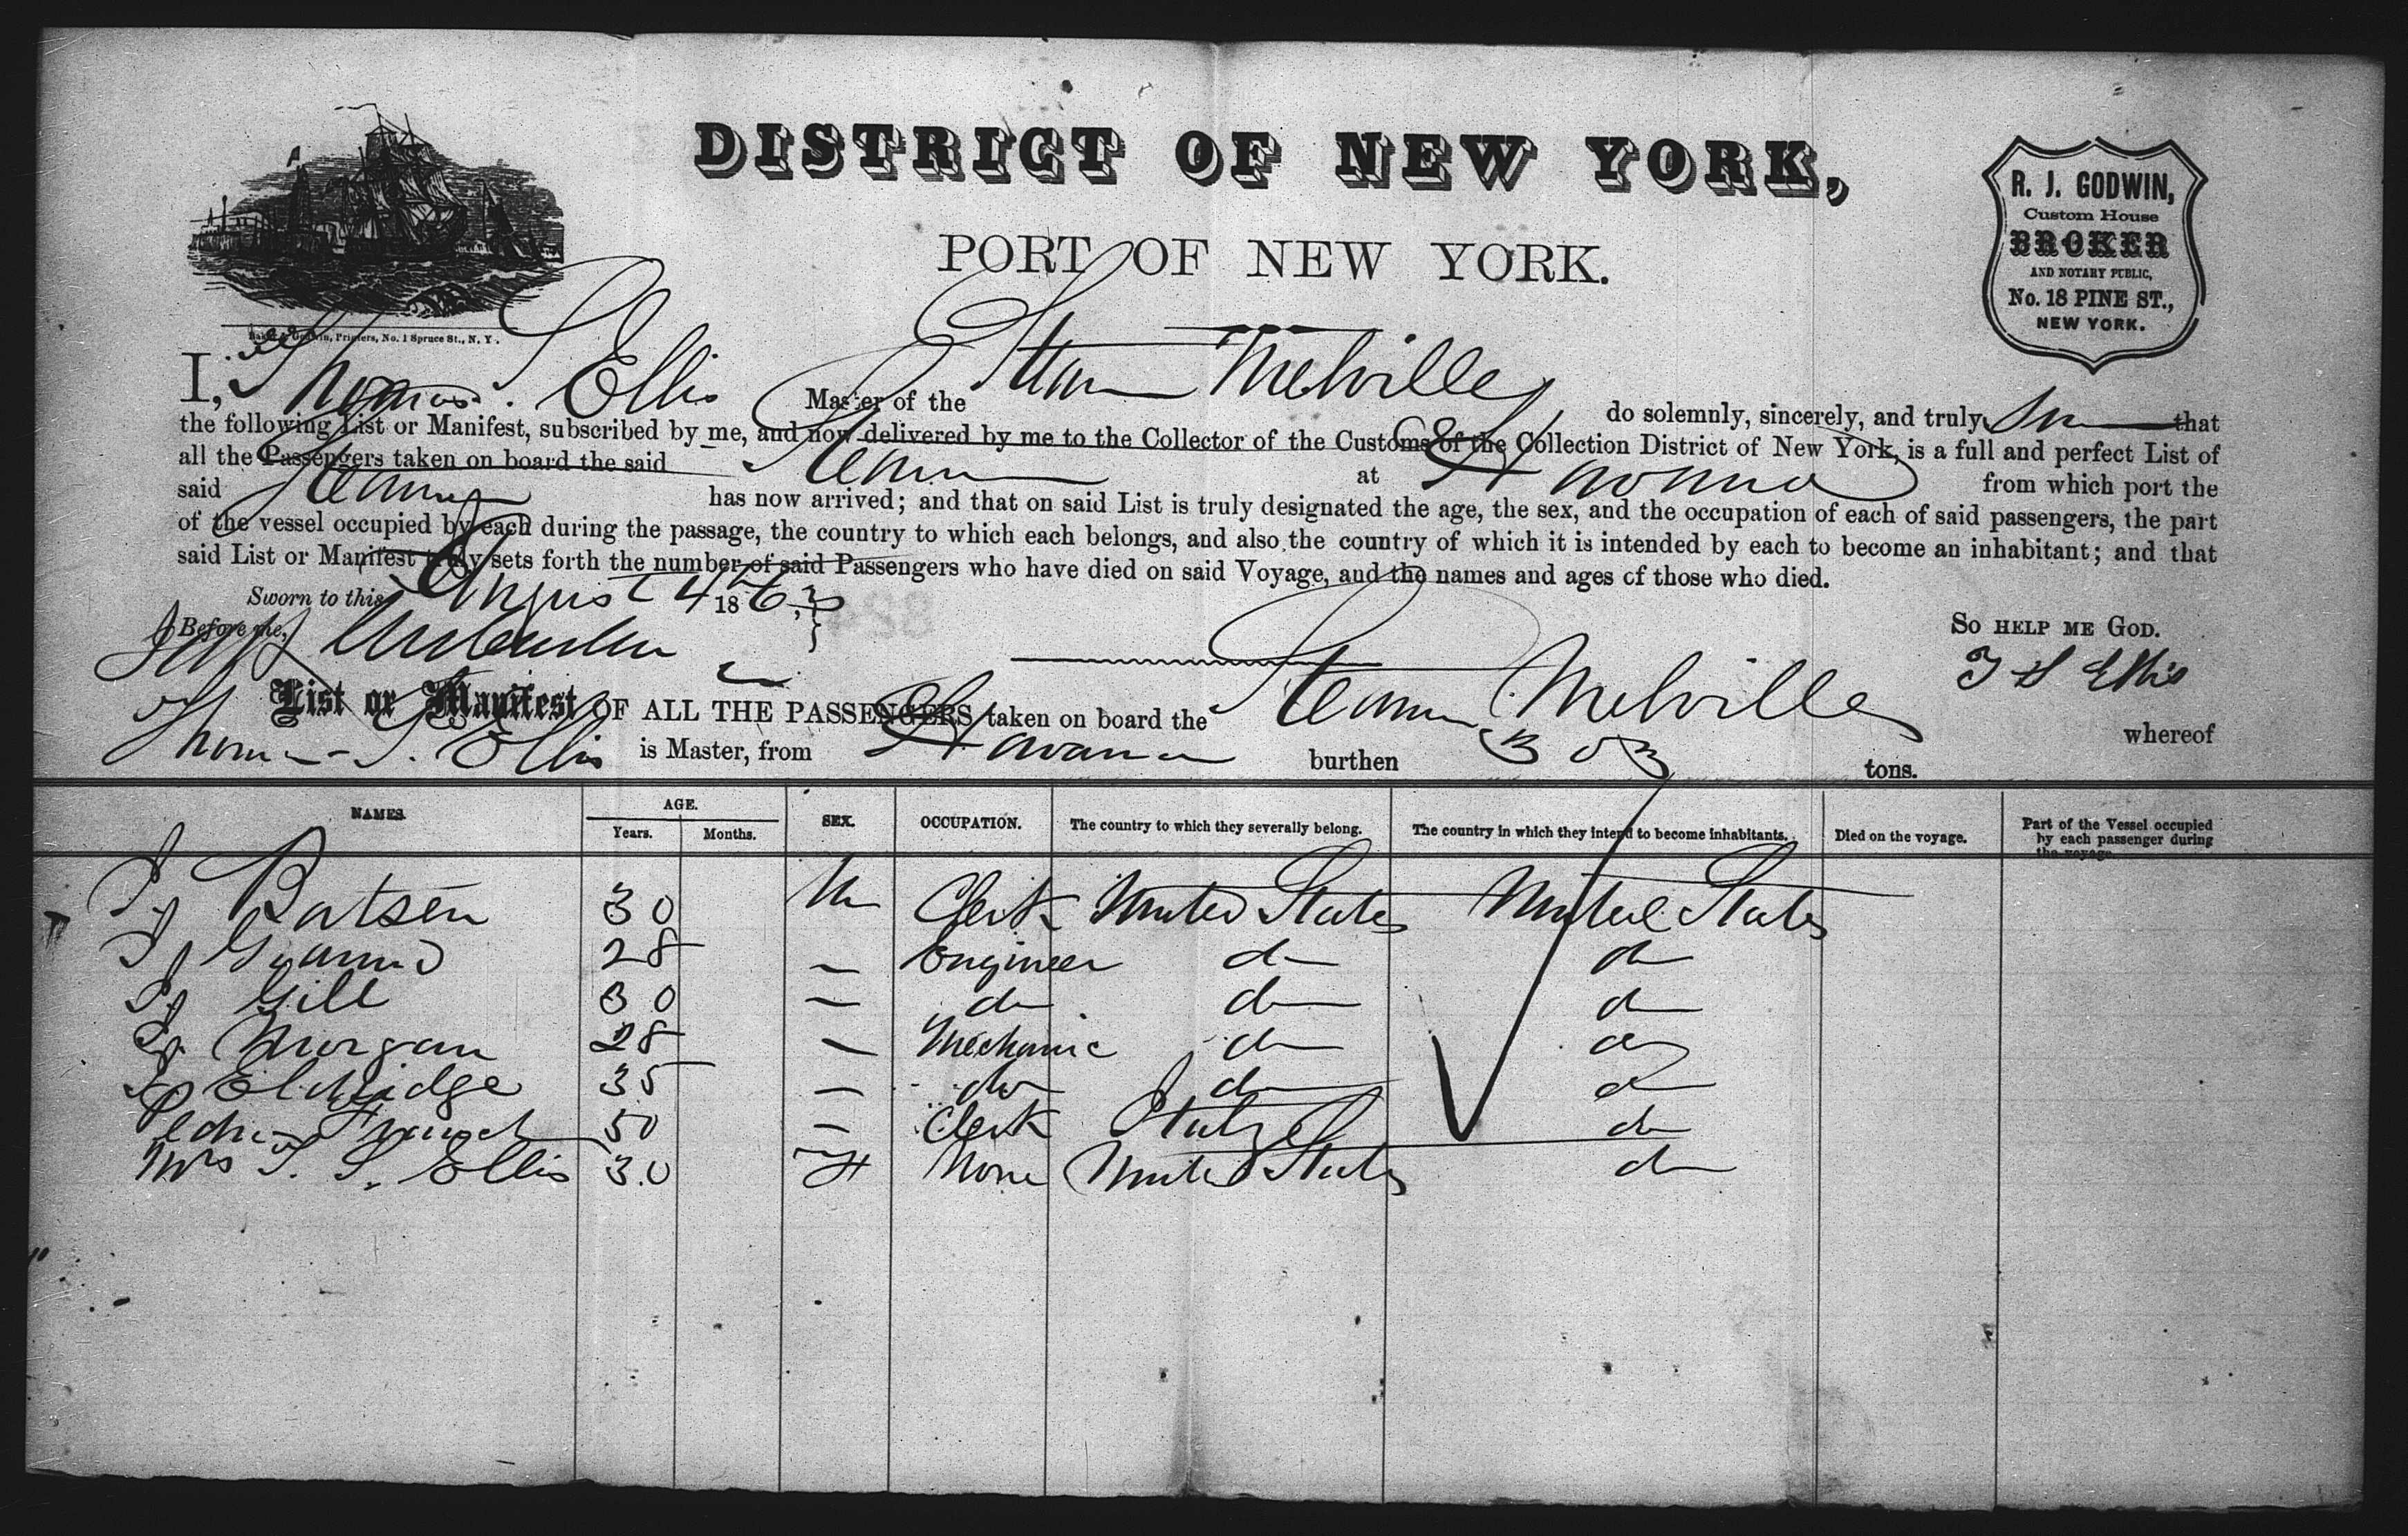 DISTRICT OF NEW YORK,
PORT OF NEW YORK.
R. J. GODWIN,
Custom House
BROKER
AND NOTARY PUBLIC,
No. 18 PINE ST.,
NEW YORK.
Baker & Godwin, Printers, No. 1 Spruce St., N. Y.
I, Thomas S. Ellis Master of the Steamer Melville do solemnly, sincerely, and truly that
the following List or Manifest, subscribed by me, and now delivered by me to the Collector of the Customs of the Collection District of New York, is a full and perfect List of
all the Passengers taken on board the said Steamer at Havana from which port the
said Steamer has now arrived; and that on said List is truly designated the age, the sex, and the occupation of each of said passengers, the part
of the vessel occupied by each during the passage, the country to which each belongs, and also the country of which it is intended by each to become an inhabitant; and that
said List or Manifest truly sets forth the number of said Passengers who have died on said Voyage, and the names and ages of those who died.
Sworn to this August 4 1863
Before me,
So HELP ME GOD.
T S Ellis
List or Manifest OF ALL THE PASSENGERS taken on board the Steamer Melville whereof
Thomas S. Ellis is Master, from Havana burthen 303 tons.
NAMES. AGE. Years. Months. SEX. OCCUPATION. The country to which they severally belong. The country in which they intend to become inhabitants. Died on the voyage. Part of the Vessel occupied by each passenger during the voyage.
Batsen 30 M Clerk United States United States
28 — Engineer do do
Gill 30 — do do do
Morgan 28 — Mechanic do do
Eldridge 35 — do do do
50 — Clerk do
Mrs T. S. Ellis 30 None United States do